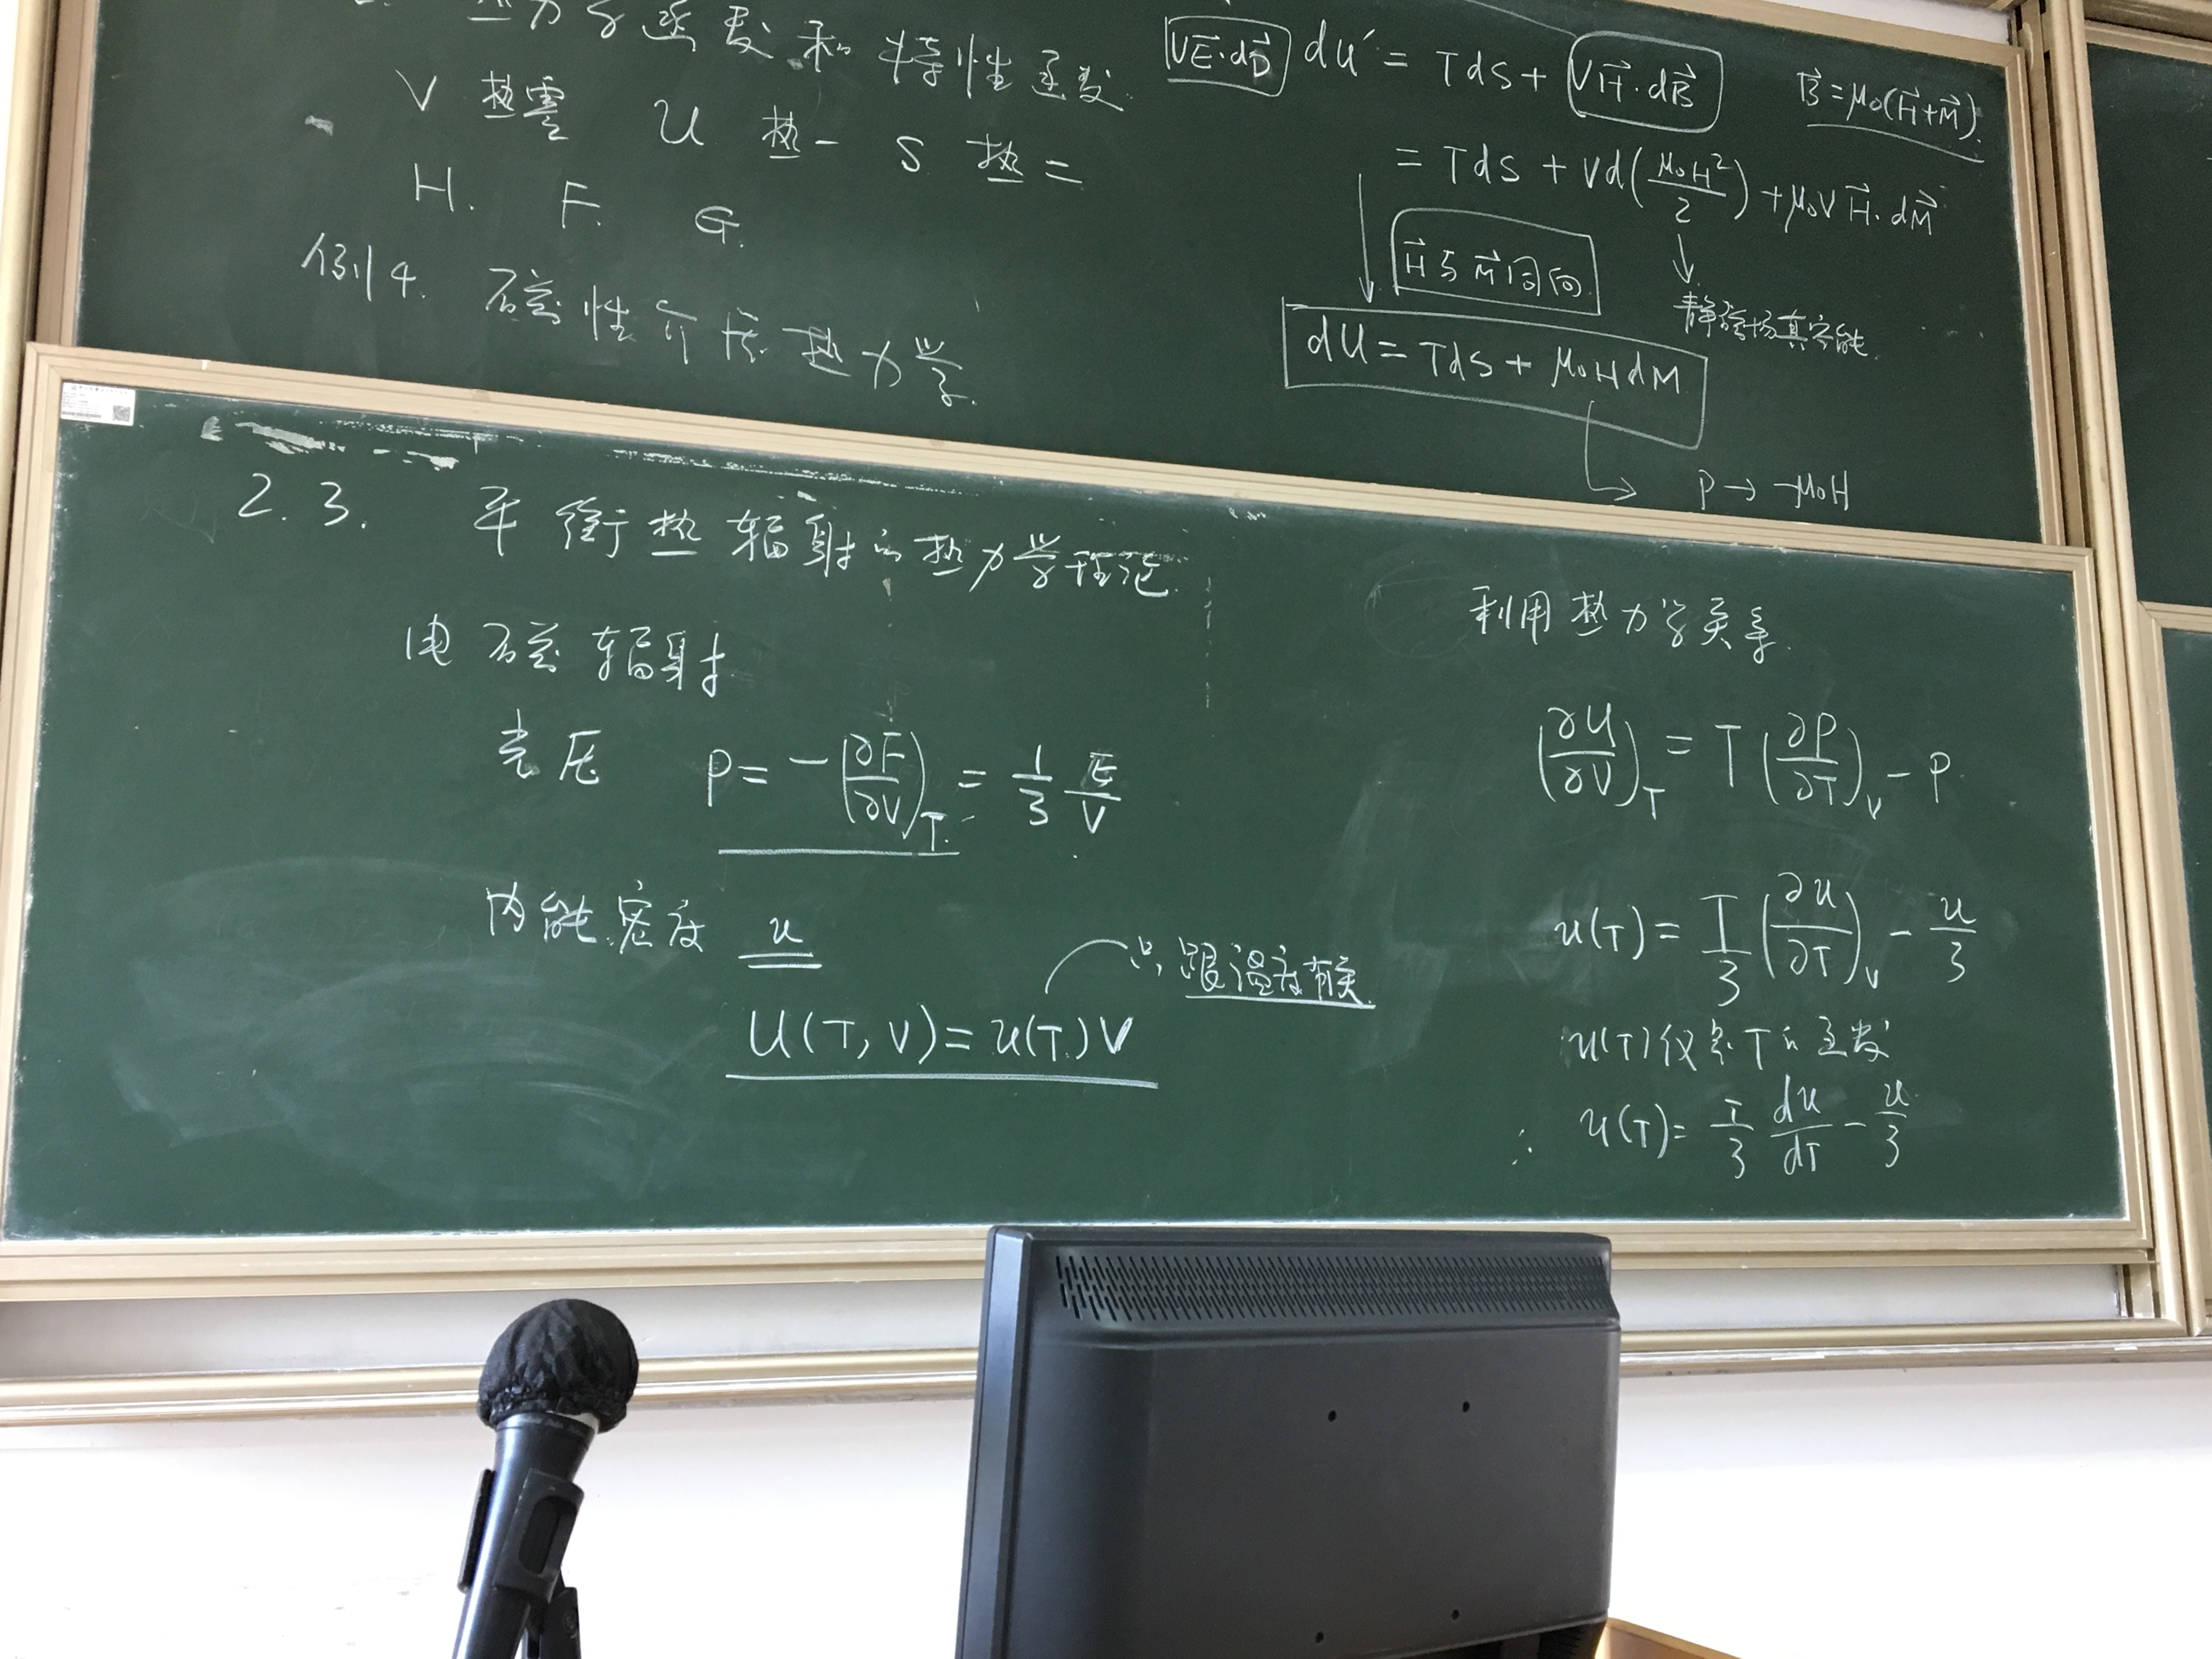 热力学函数和特性函数
V 热零 U 热一 S 热二
H. F. G.
例4. 磁性介质热力学.
VE⃗·dD⃗ dU′ = TdS + VH⃗·dB⃗ B⃗=μ₀(H⃗+M⃗).
= TdS + Vd(μ₀H²/2) + μ₀V H⃗·dM⃗
H⃗与M⃗同向
静磁场真空能.
dU = TdS + μ₀HdM
P → -μ₀H
2.3. 平衡热辐射的热力学理论
电磁辐射
光压 P = -(∂F/∂V)_T = 1/3 E/V
内能密度 u
只跟温度有关
U(T,V) = u(T)V
利用热力学关系
(∂U/∂V)_T = T(∂P/∂T)_V - P
u(T) = T/3 (∂u/∂T)_V - u/3
u(T)仅是T的函数
∴ u(T) = T/3 du/dT - u/3